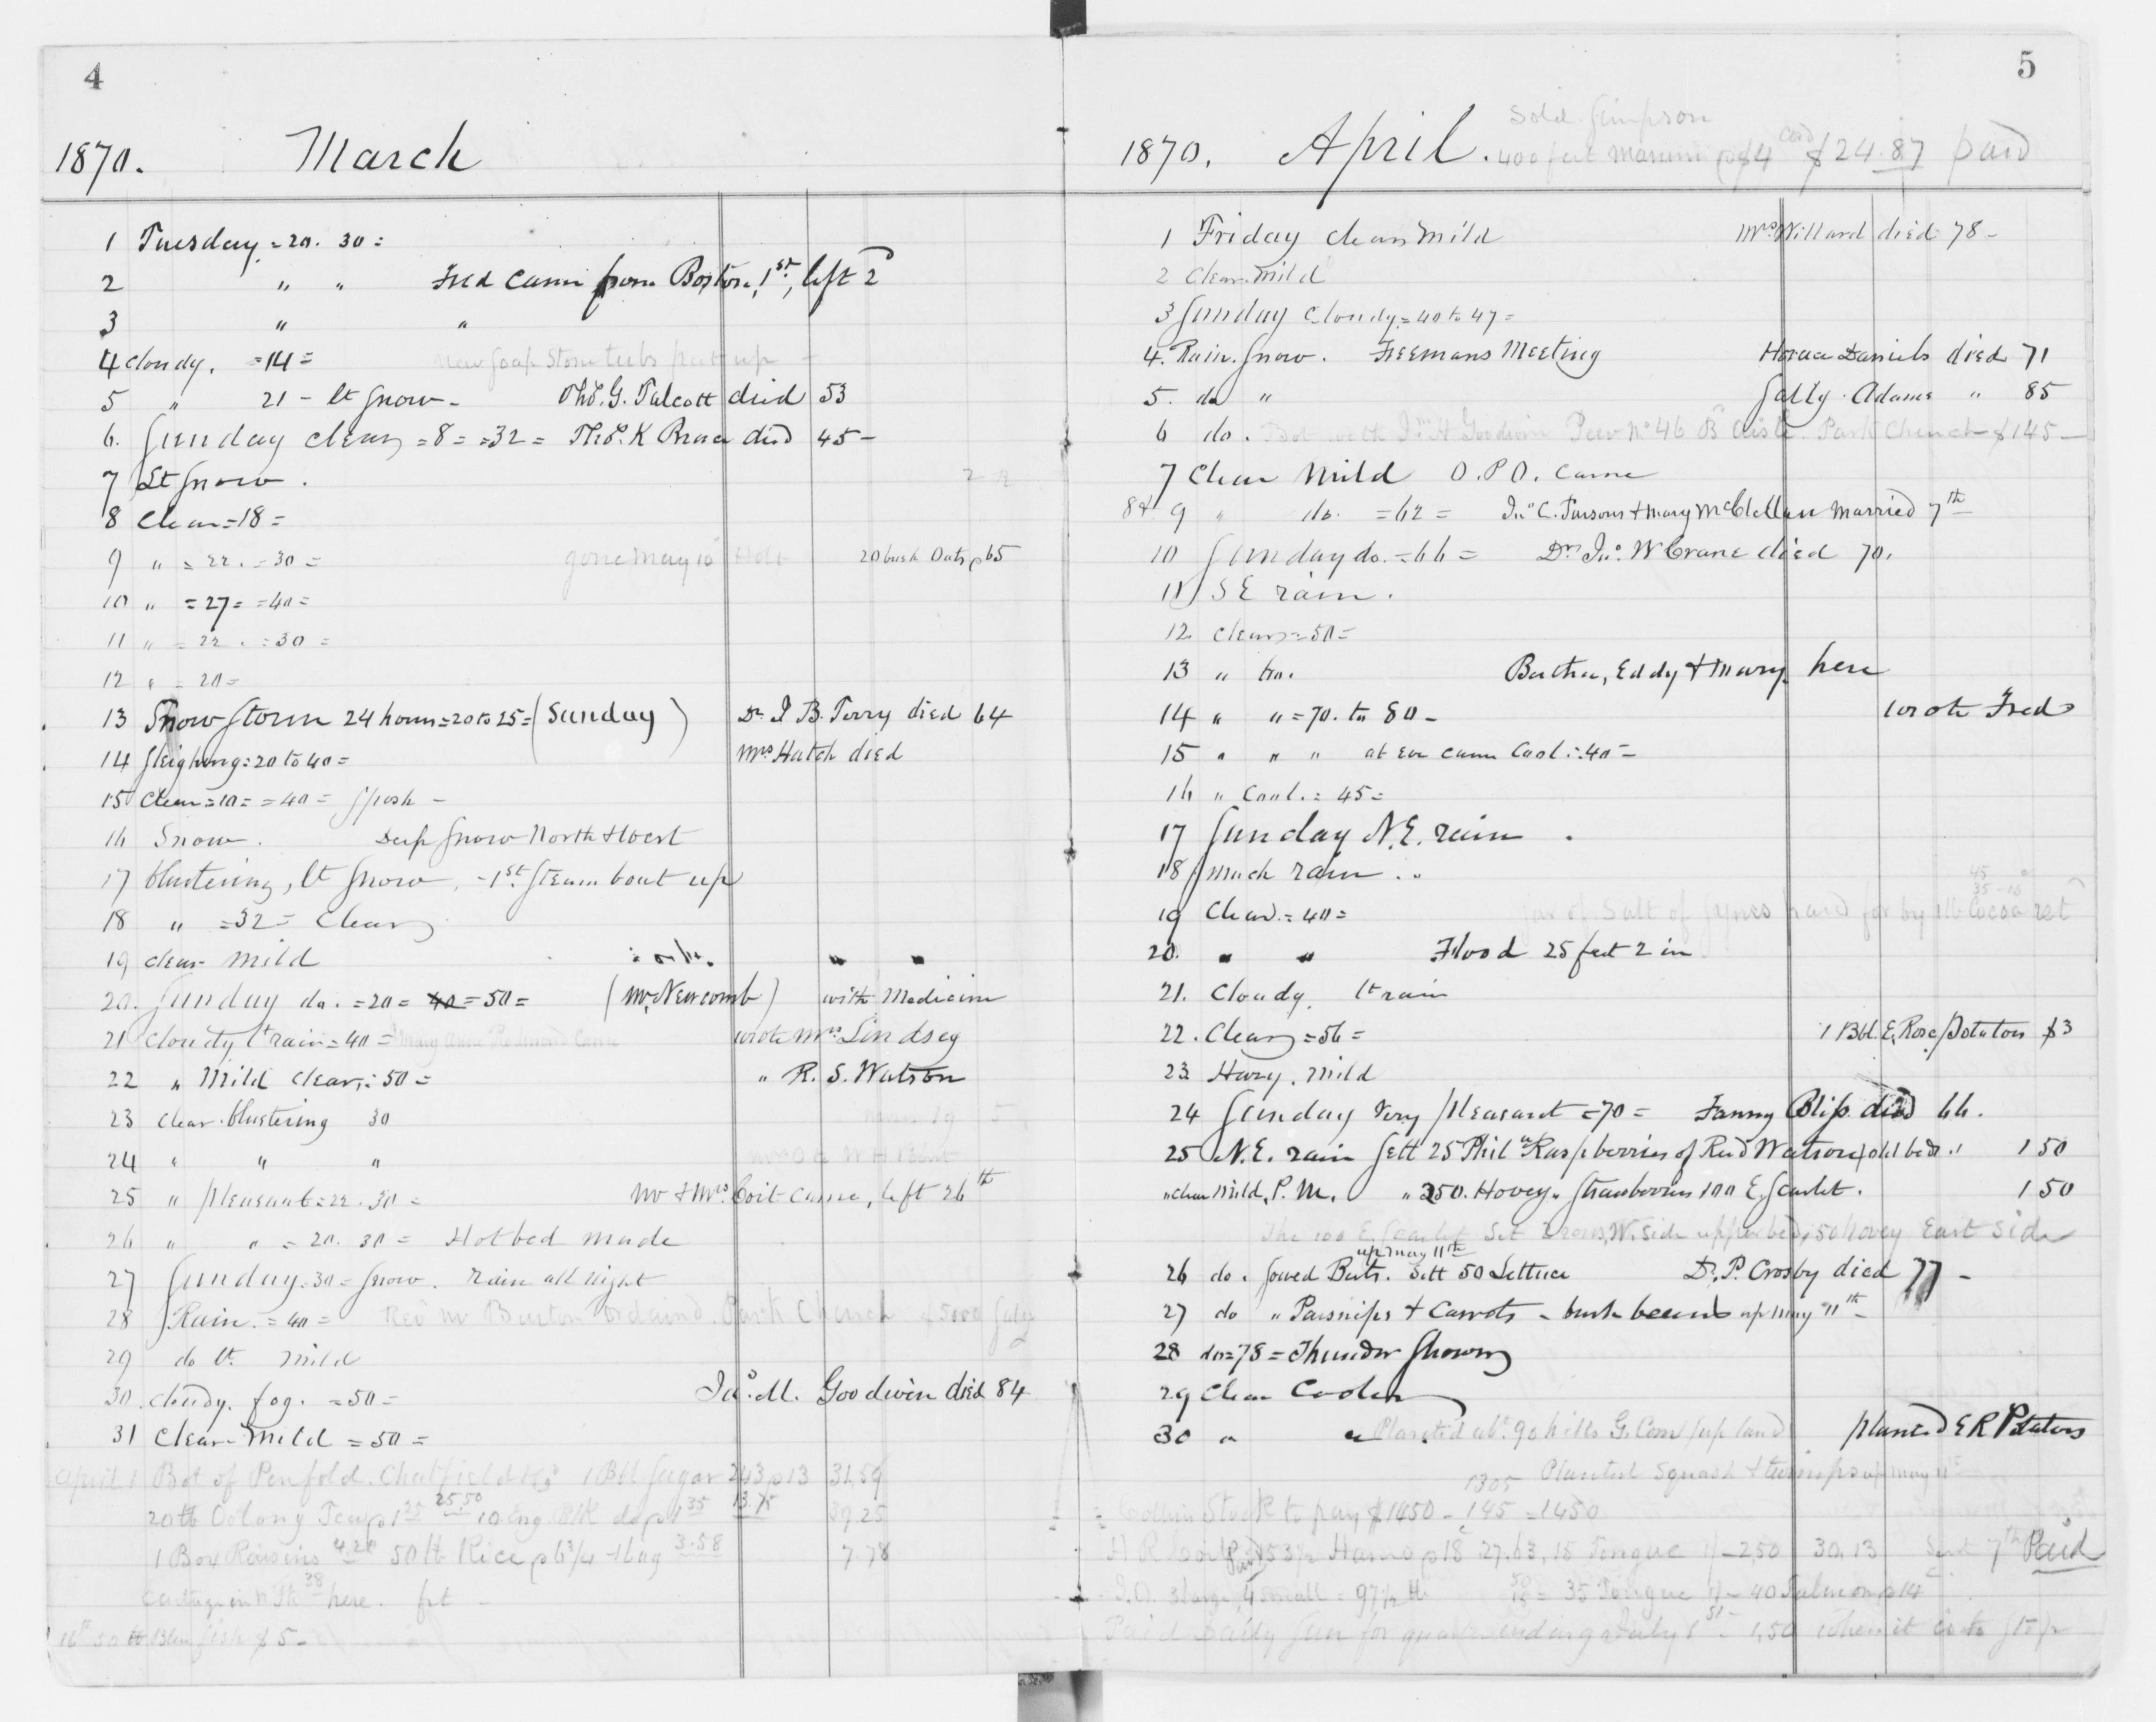 4
1870. March
1 Tuesday = 20. 30 =
2 " " Fred came from Boston, 1st, left 2d
3 " "
4 Cloudy. = 14 = new Soap Stone tubs put up -
5 " 21 - lt Snow - Thos. G. Talcott died 53
6. Sunday clear = 8 = = 32 = Thos. K Brace died 45 -
7 Lt Snow.
8 Clear = 18 =
9 " = 22. = 30 = gone May 10 20 bush Oats p 65
10 " = 27 = = 40 =
11 " = 22. = 30 =
12 " = 20 =
13 Snow Storm 24 hours = 20 to 25 = (Sunday) Dr I B. Terry died 64
14 Sleighing = 20 to 40 = Mrs Hatch died
15 Clear = 10 = = 40 = Sposh -
16 Snow. Deep Snow North & West
17 blustering, lt Snow. - 1st. Steam boat up
18 " = 32 = Clear
19 clear mild " "
20. Sunday do. = 20 = 40 = 50 = (Mr. Newcomb) with Medicine
21 cloudy lt rain = 40 = Mary Ann Came wrote Mrs Lindsey
22 " Mild clear, = 50 = " R. S. Watson
23 clear. blustering 30
24 " " "
25 " pleasant = 22. 30 = Mr & Mrs. Coit came, left 26th
26 " " = 20. 30 = Hot bed made
27 Sunday. 30 = Snow. rain all night
28 Rain. = 40 = Rev Mr Burton Ordaind. Park Church $5000 Saly
29 do lt. mild
30. cloudy. fog. = 50 = Jas. M. Goodwin died 84
31 Clear Mild = 50 =
April 1 Bot of Penfold. Chatfield & Co 1 Bbl Sugar 243 p 13 31,59
20 lb Oolong Tea p 1 25 25.50 10 Eng Bfk do p 1 35 13.75 39.25
1 Box Raisins 4.20 50 lb Rice p 6 3/4 - 1 bag 3.58 7.78
Cartage in N Yk 38 here. frt -
16th 50 lb Blue fish $5 -
5
Sold Simpson
1870. April. 400 feet p $4 $24.87 paid
1 Friday clear mild Mrs. Willard died 78 -
2 Clear. mild
3 Sunday Cloudy. = 40 to 47 =
4. Rain. Snow. Freemans Meeting Horace Daniels died 71
5. do " Sally. Adams " 85
6 do. Bot with Jas H Goodwin Pew No 46 B aisle. Park Church $145 -
7 Clear Mild O.P.D. came
8 & 9 " do. = 62 = Jno C. Parsons & Mary McClellan married 7th
10 Sunday do. = 66 = Dr. Jno. W Crane died 70.
11 S E rain.
12. clear = 50 =
13 " do. Bertha, Eddy & Mary here
14 " " = 70. to 80 - wrote Fred
15 " " " at eve came Cool. = 40 =
16 " Cool. = 45 =
17 Sunday N.E. rain.
18 much rain..
19 Clear. = 40 = of Salt of paid for by 1 lb Cocoa ret
20. " " Flood 25 feet 2 in
21. Cloudy, lt rain
22. Clear = 56 = 1 Bbl. E. Rose Potatoes $3
23 Hazy. Mild
24 Sunday very pleasant = 70 = Fanny Bliss died 66.
25 N.E. rain Sett 25 Phila Raspberries of Rud Watson, old bed. 1 50
" clear mild, P.M. " 250. Hovey. Strawberries 100 E. Scarlet. 1 50
The 100 E. Scarlet Set 3 rows, W. side upper bed, 50 Hovey East side
up may 11th
26 do. Sowed Beets. Sett 50 Lettuce Dr. P. Crosby died 77 -
27 do " Parsnips & Carrots - bush beans up may 11th -
28 do = 78 = Thunder Shower
29 Clear Cooler
30 " " Planted abt. 90 hills G. Corn up land planted E R Potatoes
Planted Squash & turnips up may 11th
1305
Collins Stock to pay $1450 - 145 = 1450
153 1/2 Hams p 18c 27.63, 15 Tongue 1/ - 2,50 30.13 7th Paid
3 large, 4 small = 97 1/2 lb = 35 Tongue 1/ - 40 Salmon p 14c
Paid Daily Sun for quarter ending July 1st - 1,50 when it is to stop